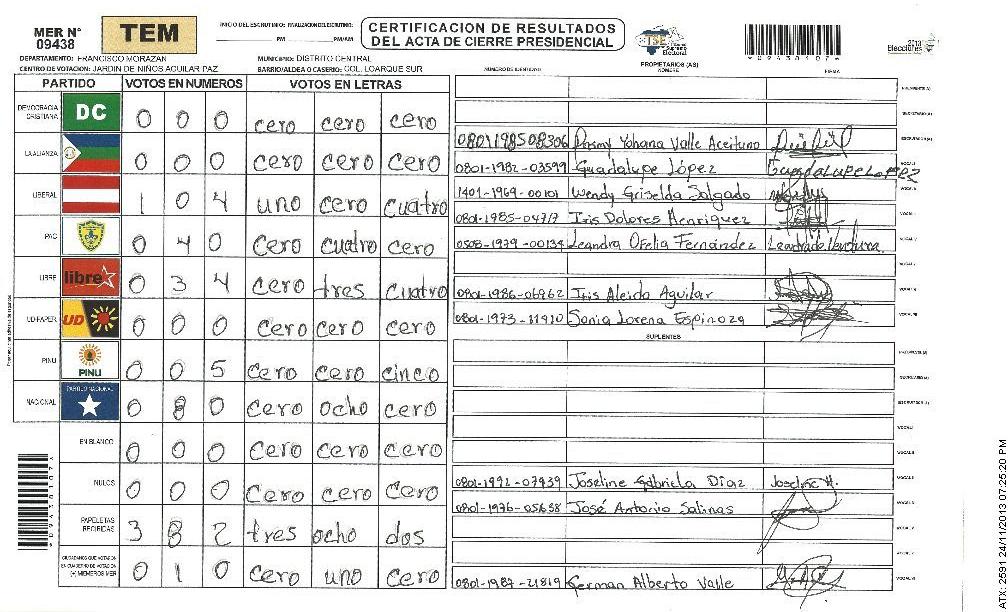 MER N° 09438
TEM
INICIO DEL ESCRUTINIO: FINALIZACION DEL ESCRUTINIO:
PM PM/AM
CERTIFICACION DE RESULTADOS
DEL ACTA DE CIERRE PRESIDENCIAL
TSE Tribunal Supremo Electoral
2013 Elecciones
*09438107*
DEPARTAMENTO: FRANCISCO MORAZAN MUNICIPIO: DISTRITO CENTRAL
CENTRO DE VOTACION: JARDIN DE NIÑOS AGUILAR PAZ BARRIO/ALDEA O CASERIO: COL. LOARQUE SUR
NUMERO DE IDENTIDAD PROPIETARIOS (AS) NOMBRE FIRMA
PARTIDO VOTOS EN NUMEROS VOTOS EN LETRAS
DEMOCRACIA CRISTIANA DC 0 0 0 cero cero cero
LA ALIANZA 0 0 0 cero cero cero
LIBERAL 1 0 4 uno cero cuatro
PAC 0 4 0 cero cuatro cero
LIBRE libre 0 3 4 cero tres cuatro
UD-FAPER UD 0 0 0 cero cero cero
PINU PINU 0 0 5 cero cero cinco
NACIONAL PARTIDO NACIONAL 0 8 0 cero ocho cero
EN BLANCO 0 0 0 cero cero cero
NULOS 0 0 0 cero cero cero
PAPELETAS RECIBIDAS 3 8 2 tres ocho dos
CIUDADANOS QUE VOTARON EN CUADERNO DE VOTACION (+) MIEMBROS MER 0 1 0 cero uno cero
PRESIDENTE (A)
SECRETARIO (A)
0801198508306 Dasmy Yohana Valle Aceituno ESCRUTADOR (A)
0801-1982-03599 Guadalupe López Guadalupe Lopez VOCAL I
1401-1969-00101 Wendy Griselda Salgado VOCAL II
0801-1985-04717 Iris Dolores Henriquez VOCAL III
0508-1979-00134 Leandra Ofelia Fernández VOCAL IV
VOCAL V
0801-1986-06962 Iris Aleida Aguilar VOCAL VI
0801-1973-11910 Sonia Lorena Espinoza VOCAL VII
SUPLENTES
PRESIDENTE (A)
SECRETARIO (A)
ESCRUTADOR (A)
VOCAL I
VOCAL II
0801-1992-07939 Joseline Gabriela Díaz Joseline H. VOCAL III
0801-1976-05638 José Antonio Salinas VOCAL IV
VOCAL V
VOCAL VI
0801-1987-21819 German Alberto Valle VOCAL VII
*09438107*
ATX: 2591 24/11/2013 07:25:20 PM